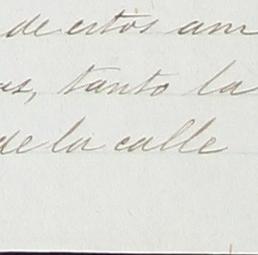 de estos am
as, tanto la
de la calle